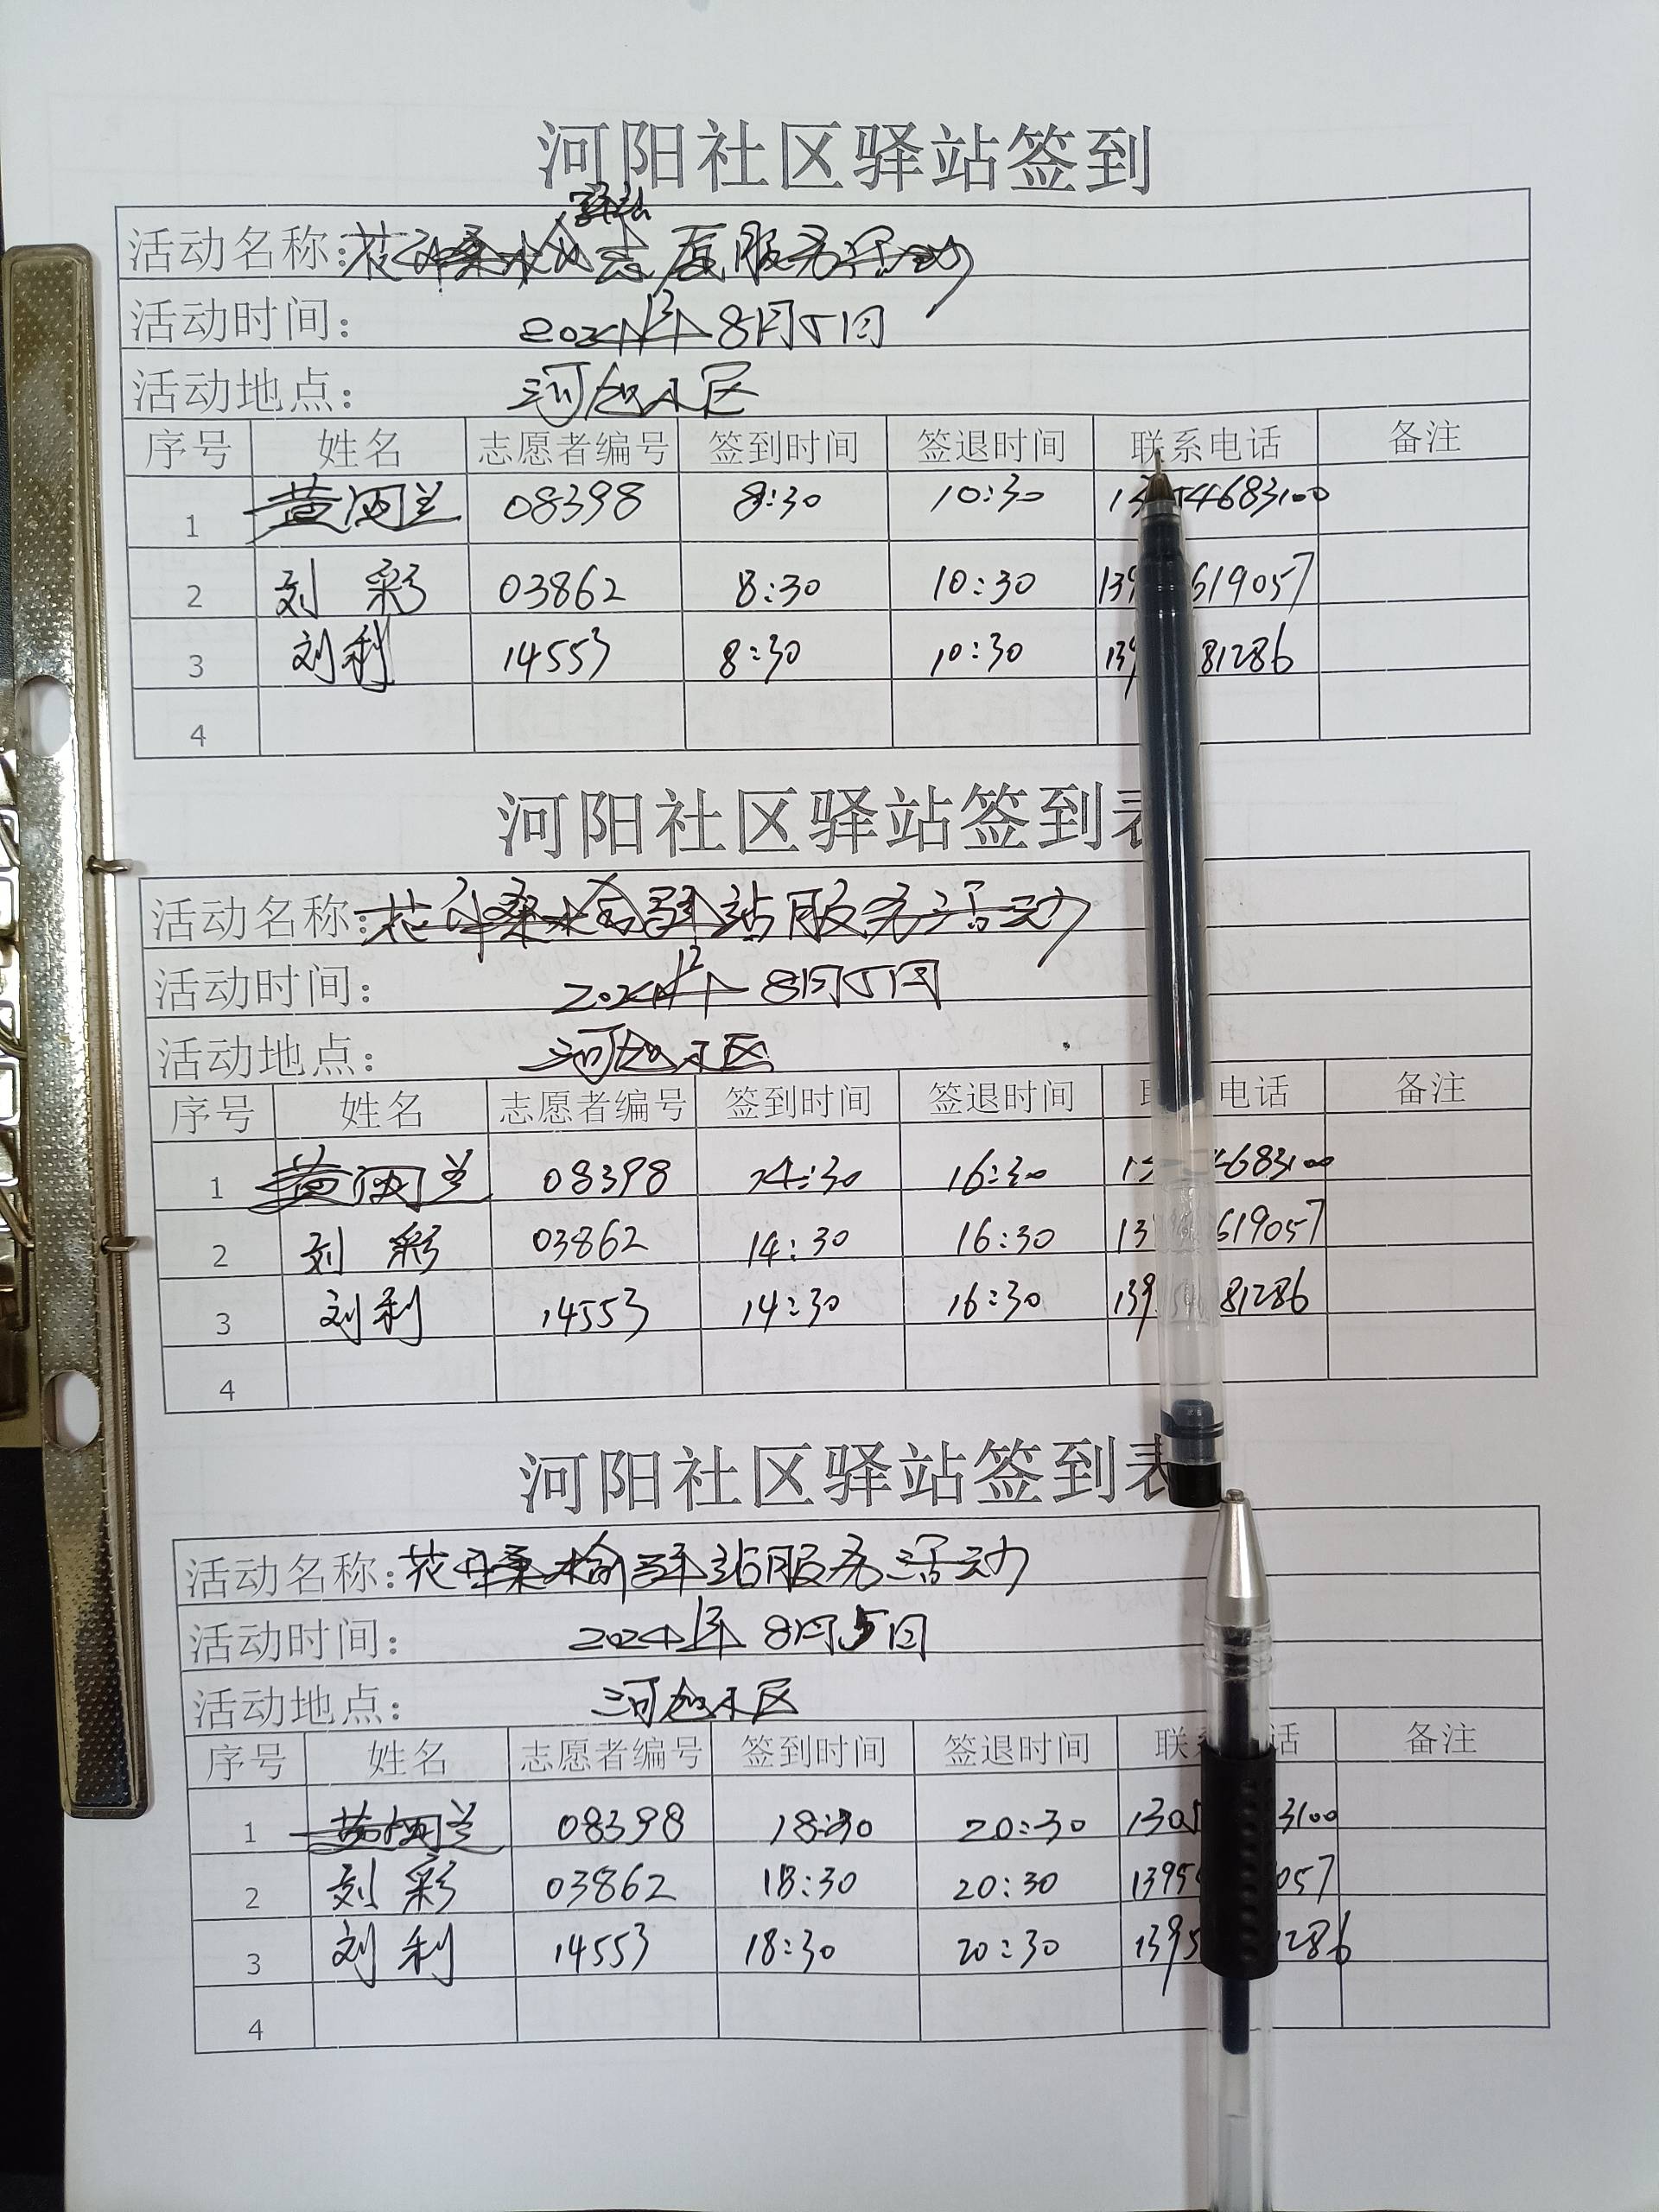 河阳社区驿站签到
活动名称: 志愿服务活动
活动时间: 8月5日
活动地点: 河 区
序号 姓名 志愿者编号 签到时间 签退时间 联系电话 备注
1 08398 8:30 10:30 4683100
2 刘彩 03862 8:30 10:30 139 619057
3 刘利 14553 8:30 10:30 139 81286
4
河阳社区驿站签到表
活动名称: 驿站服务活动
活动时间: 8月5日
活动地点: 河 区
序号 姓名 志愿者编号 签到时间 签退时间 电话 备注
1 08398 14:30 16:30 4683100
2 刘彩 03862 14:30 16:30 13 619057
3 刘利 14553 14:30 16:30 139 81286
4
河阳社区驿站签到表
活动名称: 花 桑榆驿站服务活动
活动时间: 8月5日
活动地点: 河 区
序号 姓名 志愿者编号 签到时间 签退时间 联 话 备注
1 08398 18:30 20:30 1305 3100
2 刘彩 03862 18:30 20:30 1395 057
3 刘利 14553 18:30 20:30 1395 1286
4